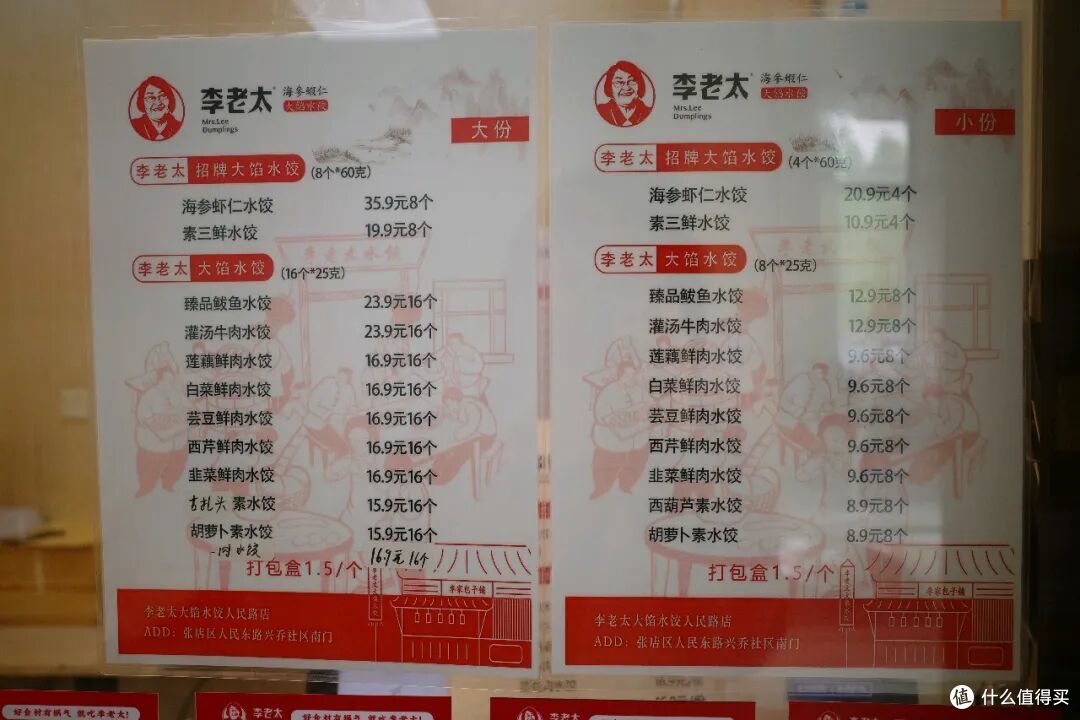 李老太
海参蝦仁
大馅水饺
Mrs.Lee
Dumplings
大份
李老太 招牌大馅水饺 (8个*60克)
海参虾仁水饺 35.9元8个
素三鲜水饺 19.9元8个
李老太 大馅水饺 (16个*25克)
李老太水饺
臻品鲅鱼水饺 23.9元16个
灌汤牛肉水饺 23.9元16个
莲藕鲜肉水饺 16.9元16个
白菜鲜肉水饺 16.9元16个
芸豆鲜肉水饺 16.9元16个
西芹鲜肉水饺 16.9元16个
韭菜鲜肉水饺 16.9元16个
素水饺 15.9元16个
胡萝卜素水饺 15.9元16个
肉水饺 16.9元16个
打包盒1.5/个
李家包子铺
李老太大馅水饺人民路店
ADD：张店区人民东路兴乔社区南门
李老太
海参蝦仁
大馅水饺
Mrs.Lee
Dumplings
小份
李老太 招牌大馅水饺 (4个*60克)
海参虾仁水饺 20.9元4个
素三鲜水饺 10.9元4个
李老太 大馅水饺 (8个*25克)
李老太水饺
臻品鲅鱼水饺 12.9元8个
灌汤牛肉水饺 12.9元8个
莲藕鲜肉水饺 9.6元8个
白菜鲜肉水饺 9.6元8个
芸豆鲜肉水饺 9.6元8个
西芹鲜肉水饺 9.6元8个
韭菜鲜肉水饺 9.6元8个
西葫芦素水饺 8.9元8个
胡萝卜素水饺 8.9元8个
打包盒1.5/个
李家包子铺
李老太大馅水饺人民路店
ADD：张店区人民东路兴乔社区南门
好食材有锅气 就吃李老太!
李老太
好食材有锅气 就吃李老太!
李老太
好食材有锅气 就吃李老太!
值 什么值得买